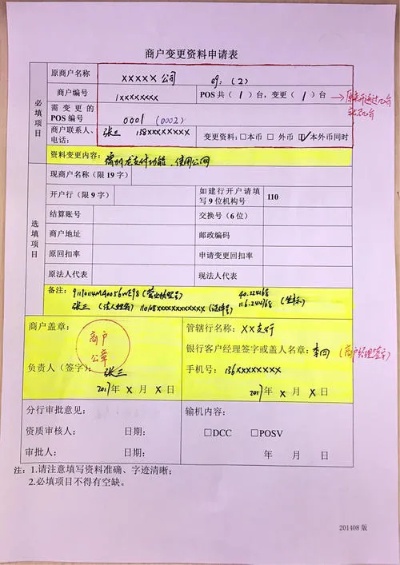 商户变更资料申请表
必填项目
原商户名称 XXXXX公司
商户编号 1XXXXXXXX POS共(1)台,变更(1)台
需变更的POS编号 0001 (0002)
商户联系人、电话: 张三 138XXXXXXXX 变更资料:□本币 □外币 ☑本外币同时
资料变更内容: 龙支付功能、使用公网
选填项目
现商户名称(限19字)
开户行(限9字) 如建行开户请填写9位机构号 110
结算账号 交换号(6位)
商户地址 邮政编码
原回扣率 申请变更回扣率
原法人代表 现法人代表
备注:
张三
商户盖章: 管辖行名称: XX支行
商户公章
银行客户经理签字或盖人名章: 李四 (客户经理签字)
负责人(签字): 张三 手机号: 136XXXXXXXX
2017年 X 月 X 日 2017年 X 月 X 日
分行审批意见: 输机内容:
资质审核人: 日期: □DCC □POSV
审批人: 日期: 年 月 日
注: 1.请注意填写资料准确、字迹清晰;
2.必填项目不得有空缺。
201408 版